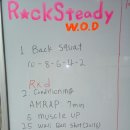 R★ckSteady
W.O.D
1 Back Squat
10-8-6-4-2
Rxd
2 Conditioning
AMRAP 7min
6 muscle up
25 wall Ball Shot (20/16)